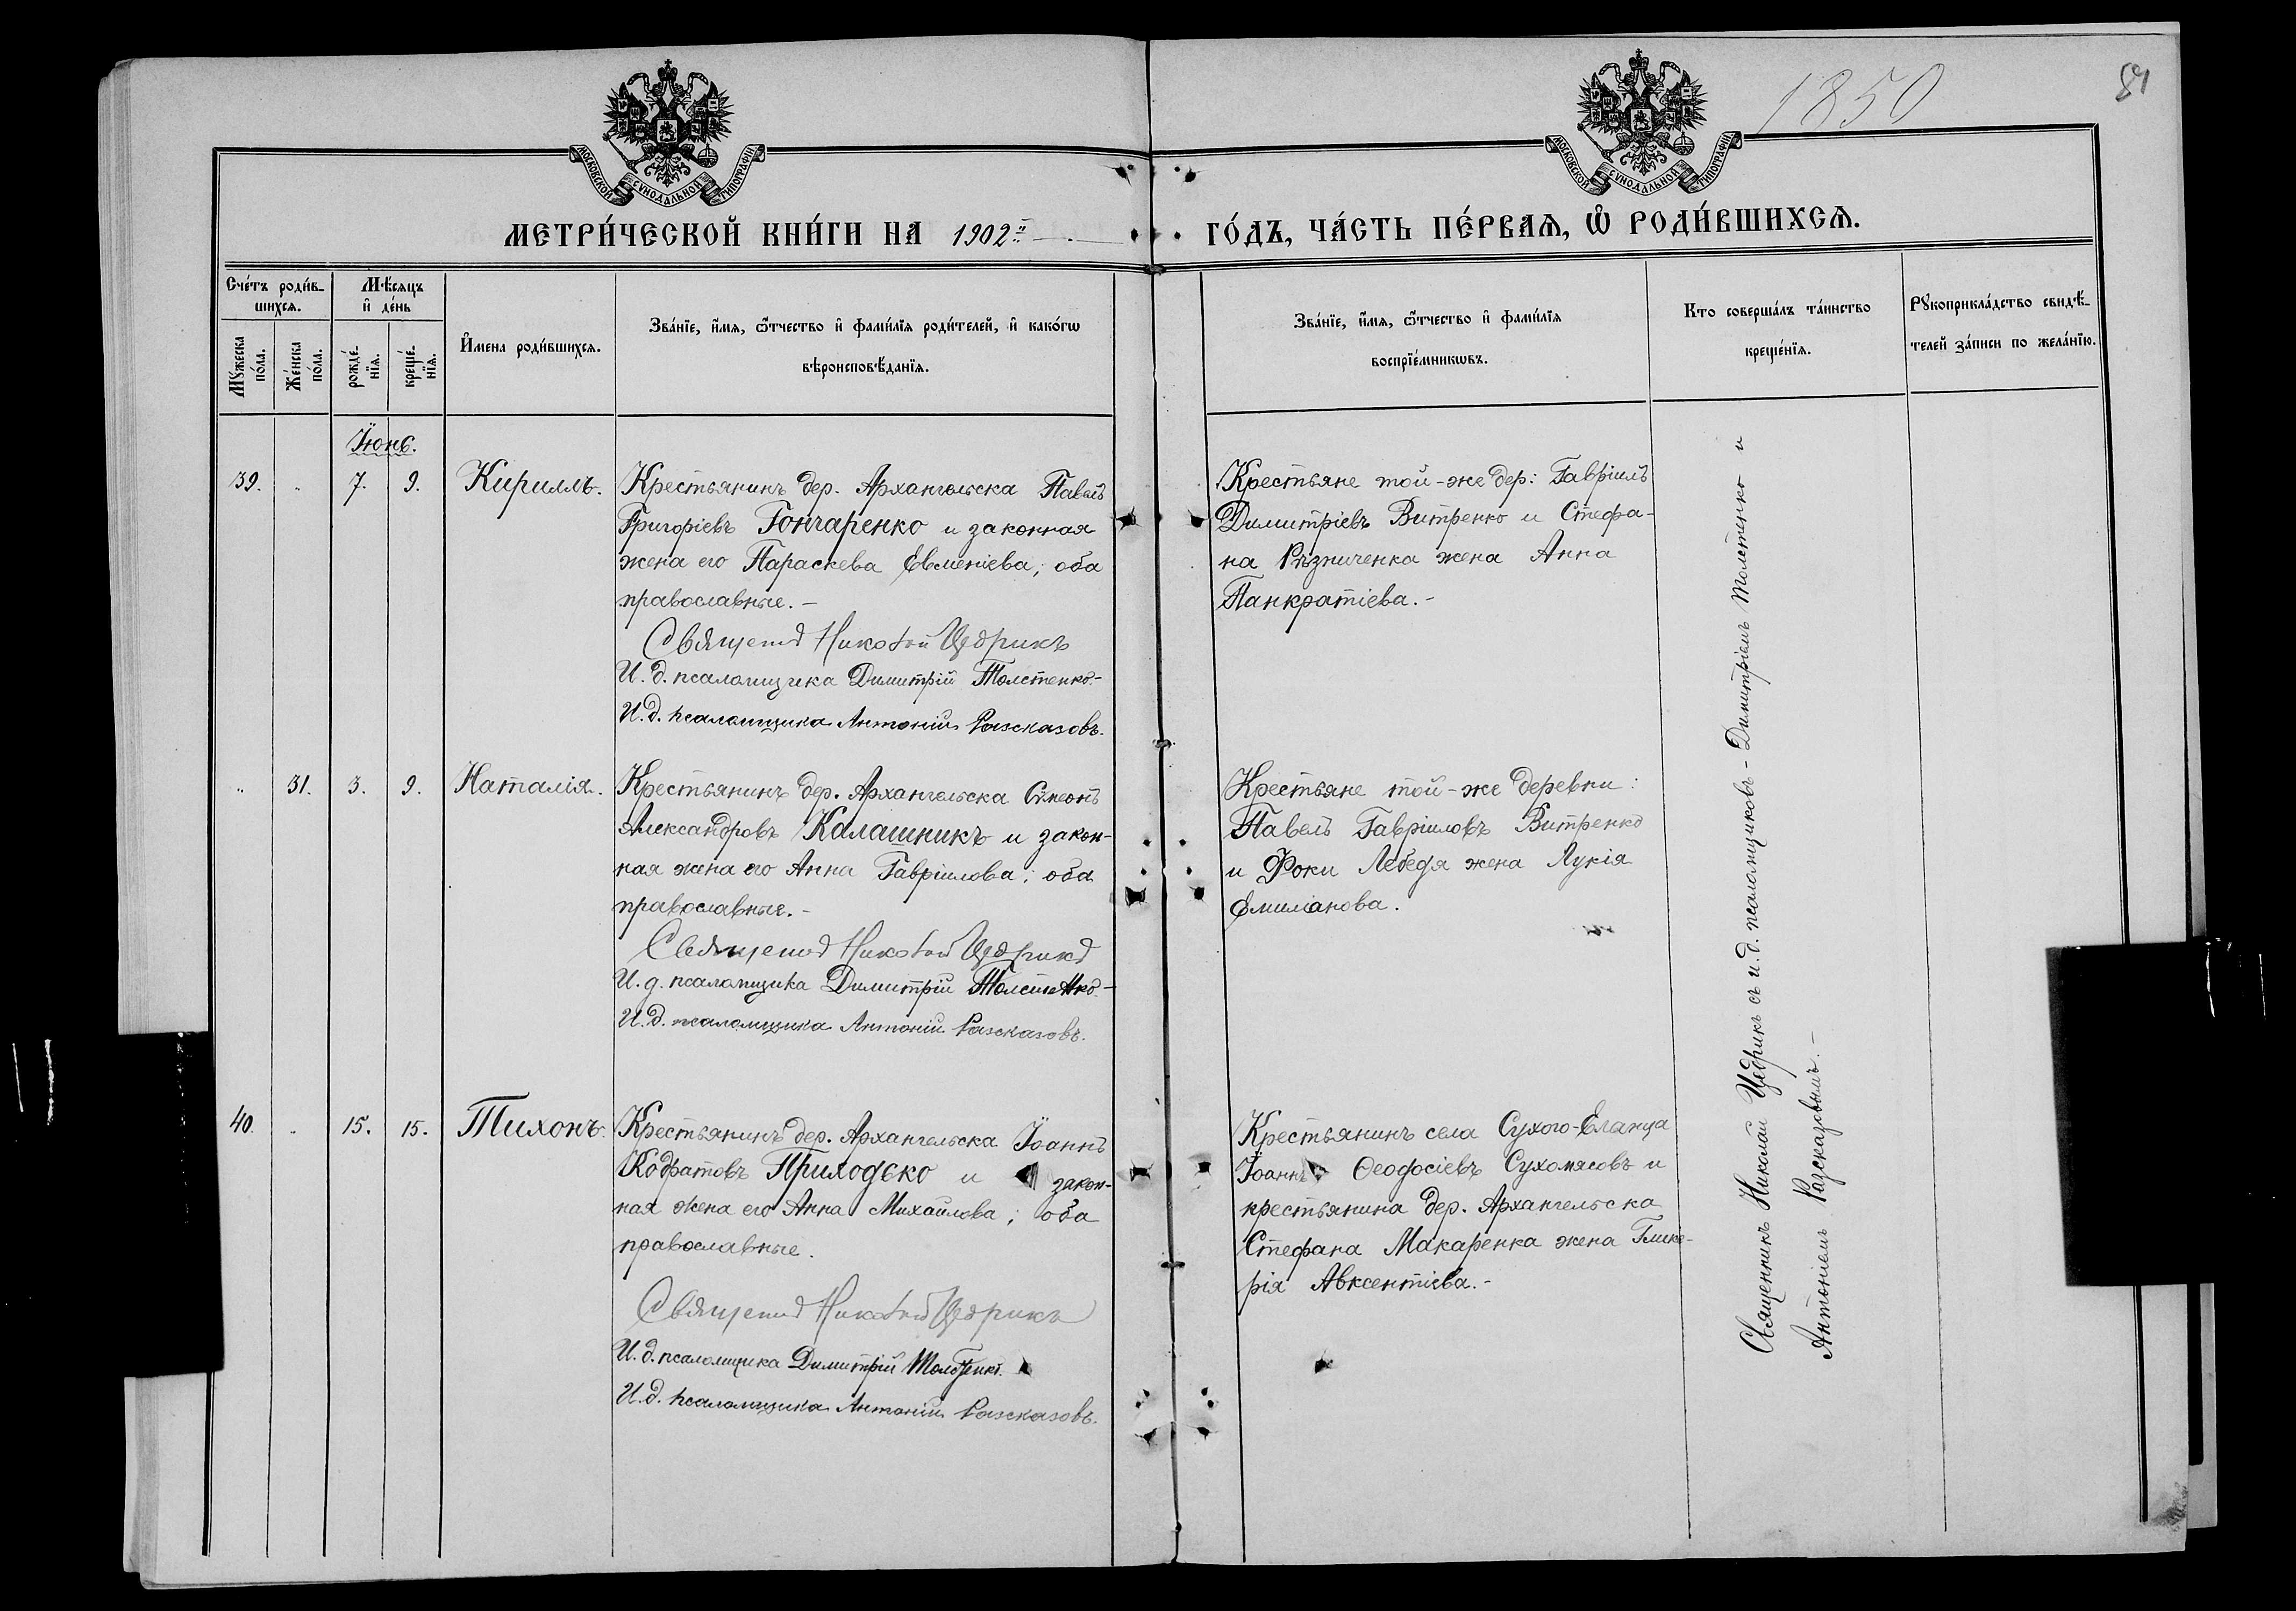 1850
МОСКОВСКОЙ СѴНОДАЛЬНОЙ ТИПОГРАФІИ
МОСКОВСКОЙ СѴНОДАЛЬНОЙ ТИПОГРАФІИ
МЕТРИ́ЧЕСКОЙ КНИ́ГИ НА 1902й
ГО́ДЪ, ЧА́СТЬ ПЕ́РВАѦ, Ѡ РОДИ́ВШИХСѦ.
Сче́тъ роди́в-
шихсѧ.
Мꙋжеска по́ла.
Же́нска по́ла.
Мѣ́сѧцъ
и де́нь
рожде́-нїѧ.
креще́-нїѧ.
И҆́мена роди́вшихсѧ.
Зва́нїе, и҆́мѧ, ѻ҆́тчество и҆ фами́лїѧ роди́телей, и҆ како́гѡ
вѣроисповѣ́данїѧ.
Зва́нїе, и҆́мѧ, ѻ҆́тчество и҆ фами́лїѧ
воспрїе́мникѡвъ.
Кто соверша́лъ та́инство
креще́нїѧ.
Рꙋкоприкла́дство свидѣ́-
телей за́писи по жела́нїю.
Іюнь.
39. „ 7. 9. Кириллъ.
Крестьянинъ дер. Архангельска Павелъ
Григоріевъ Гончаренко и законная
жена его Параскева Евменіева; оба
православные. –
Священ. Николай Цедрикъ
И. д. псаломщика Димитрій Толстенко. –
И. д. псаломщика Антоній Разсказовъ.
Крестьяне той-же дер: Гавріилъ
Димитріевъ Витренко и Стефа-
на Рѣзниченка жена Анна
Панкратіева. –
„ 31. 3. 9. Наталія.
Крестьянинъ дер. Архангельска Сѵмеонъ
Александровъ Калашникъ и закон-
ная жена его Анна Гавріилова; оба
православные. –
Священ. Николай Цедрикъ
И. д. псаломщика Димитрій Толстенко. –
И. д. псаломщика Антоній Разсказовъ.
Крестьяне той-же деревни:
Павелъ Гавріиловъ Витренко
и Фоки Лебедя жена Лукія
Емиліанова.
40. „ 15. 15. Тихонъ.
Крестьянинъ дер. Архангельска Іоаннъ
Кодратовъ Приходько и закон-
ная жена его Анна Михайлова; оба
православные.
Священ. Николай Цедрикъ
И. д. псаломщика Димитрій Толстенко.
И. д. псаломщика Антоній Разсказовъ.
Крестьянинъ села Сухого-Еланца
Іоаннъ Ѳеодосіевъ Сухомясовъ и
крестьянина дер. Архангельска
Стефана Макаренка жена Глике-
рія Авксентіева. –
Священникъ Николай Цедрикъ съ и. д. псаломщиковъ – Димитріемъ Толстенко и
Антоніемъ Разсказовымъ. –